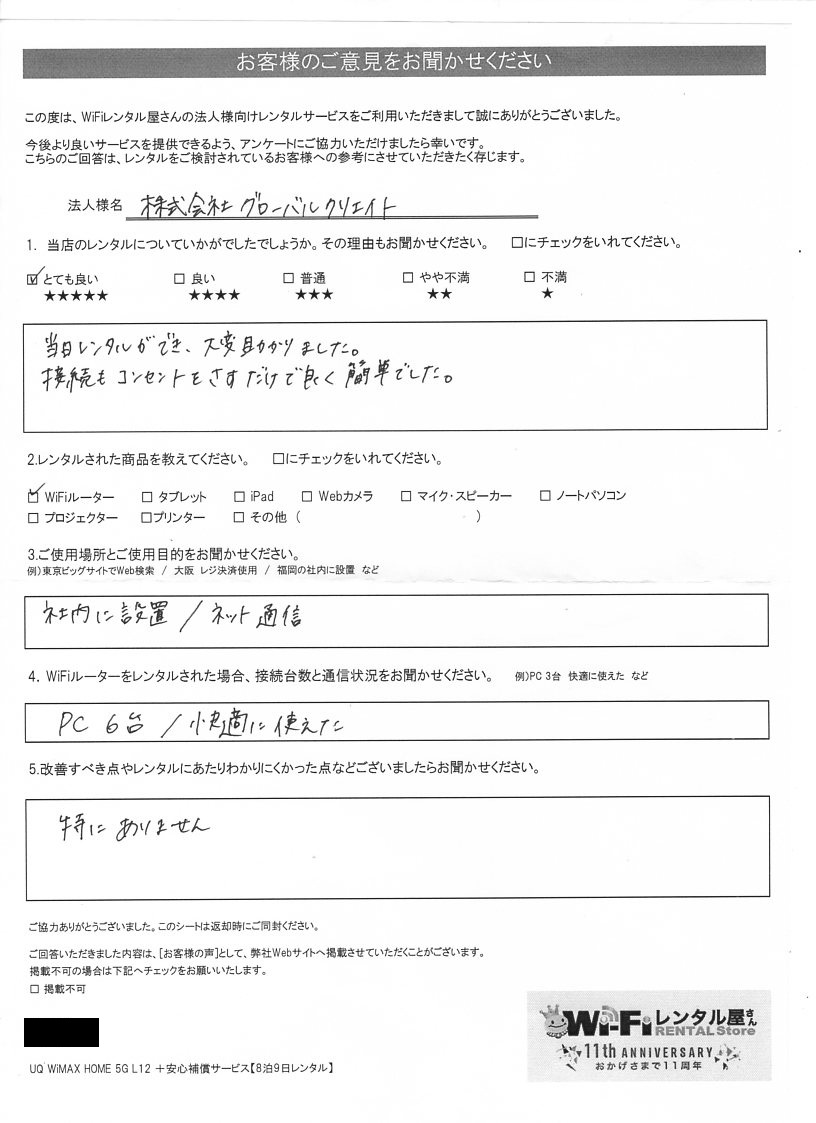 お客様のご意見をお聞かせください
この度は、WiFiレンタル屋さんの法人様向けレンタルサービスをご利用いただきまして誠にありがとうございました。
今後より良いサービスを提供できるよう、アンケートにご協力いただけましたら幸いです。
こちらのご回答は、レンタルをご検討されているお客様への参考にさせていただきたく存じます。
法人様名 株式会社グローバルクリエイト
1. 当店のレンタルについていかがでしたでしょうか。その理由もお聞かせください。 □にチェックをいれてください。
☑とても良い □ 良い □ 普通 □ やや不満 □ 不満
★★★★★ ★★★★ ★★★ ★★ ★
当日レンタルができ、大変助かりました。
接続もコンセントをさすだけで良く簡単でした。
2.レンタルされた商品を教えてください。 □にチェックをいれてください。
☑ WiFiルーター □ タブレット □ iPad □ Webカメラ □ マイク・スピーカー □ ノートパソコン
□ プロジェクター □プリンター □ その他 ( )
3.ご使用場所とご使用目的をお聞かせください。
例)東京ビッグサイトでWeb検索 / 大阪 レジ決済使用 / 福岡の社内に設置 など
社内に設置 / ネット通信
4. WiFiルーターをレンタルされた場合、接続台数と通信状況をお聞かせください。 例)PC 3台 快適に使えた など
PC 6台 / 快適に使えた
5.改善すべき点やレンタルにあたりわかりにくかった点などございましたらお聞かせください。
特にありません
ご協力ありがとうございました。このシートは返却時にご同封ください。
ご回答いただきました内容は、[お客様の声]として、弊社Webサイトへ掲載させていただくことがございます。
掲載不可の場合は下記へチェックをお願いいたします。
□ 掲載不可
Wi-Fiレンタル屋さん
RENTAL Store
11th ANNIVERSARY
おかげさまで11周年
UQ WiMAX HOME 5G L12 +安心補償サービス【8泊9日レンタル】